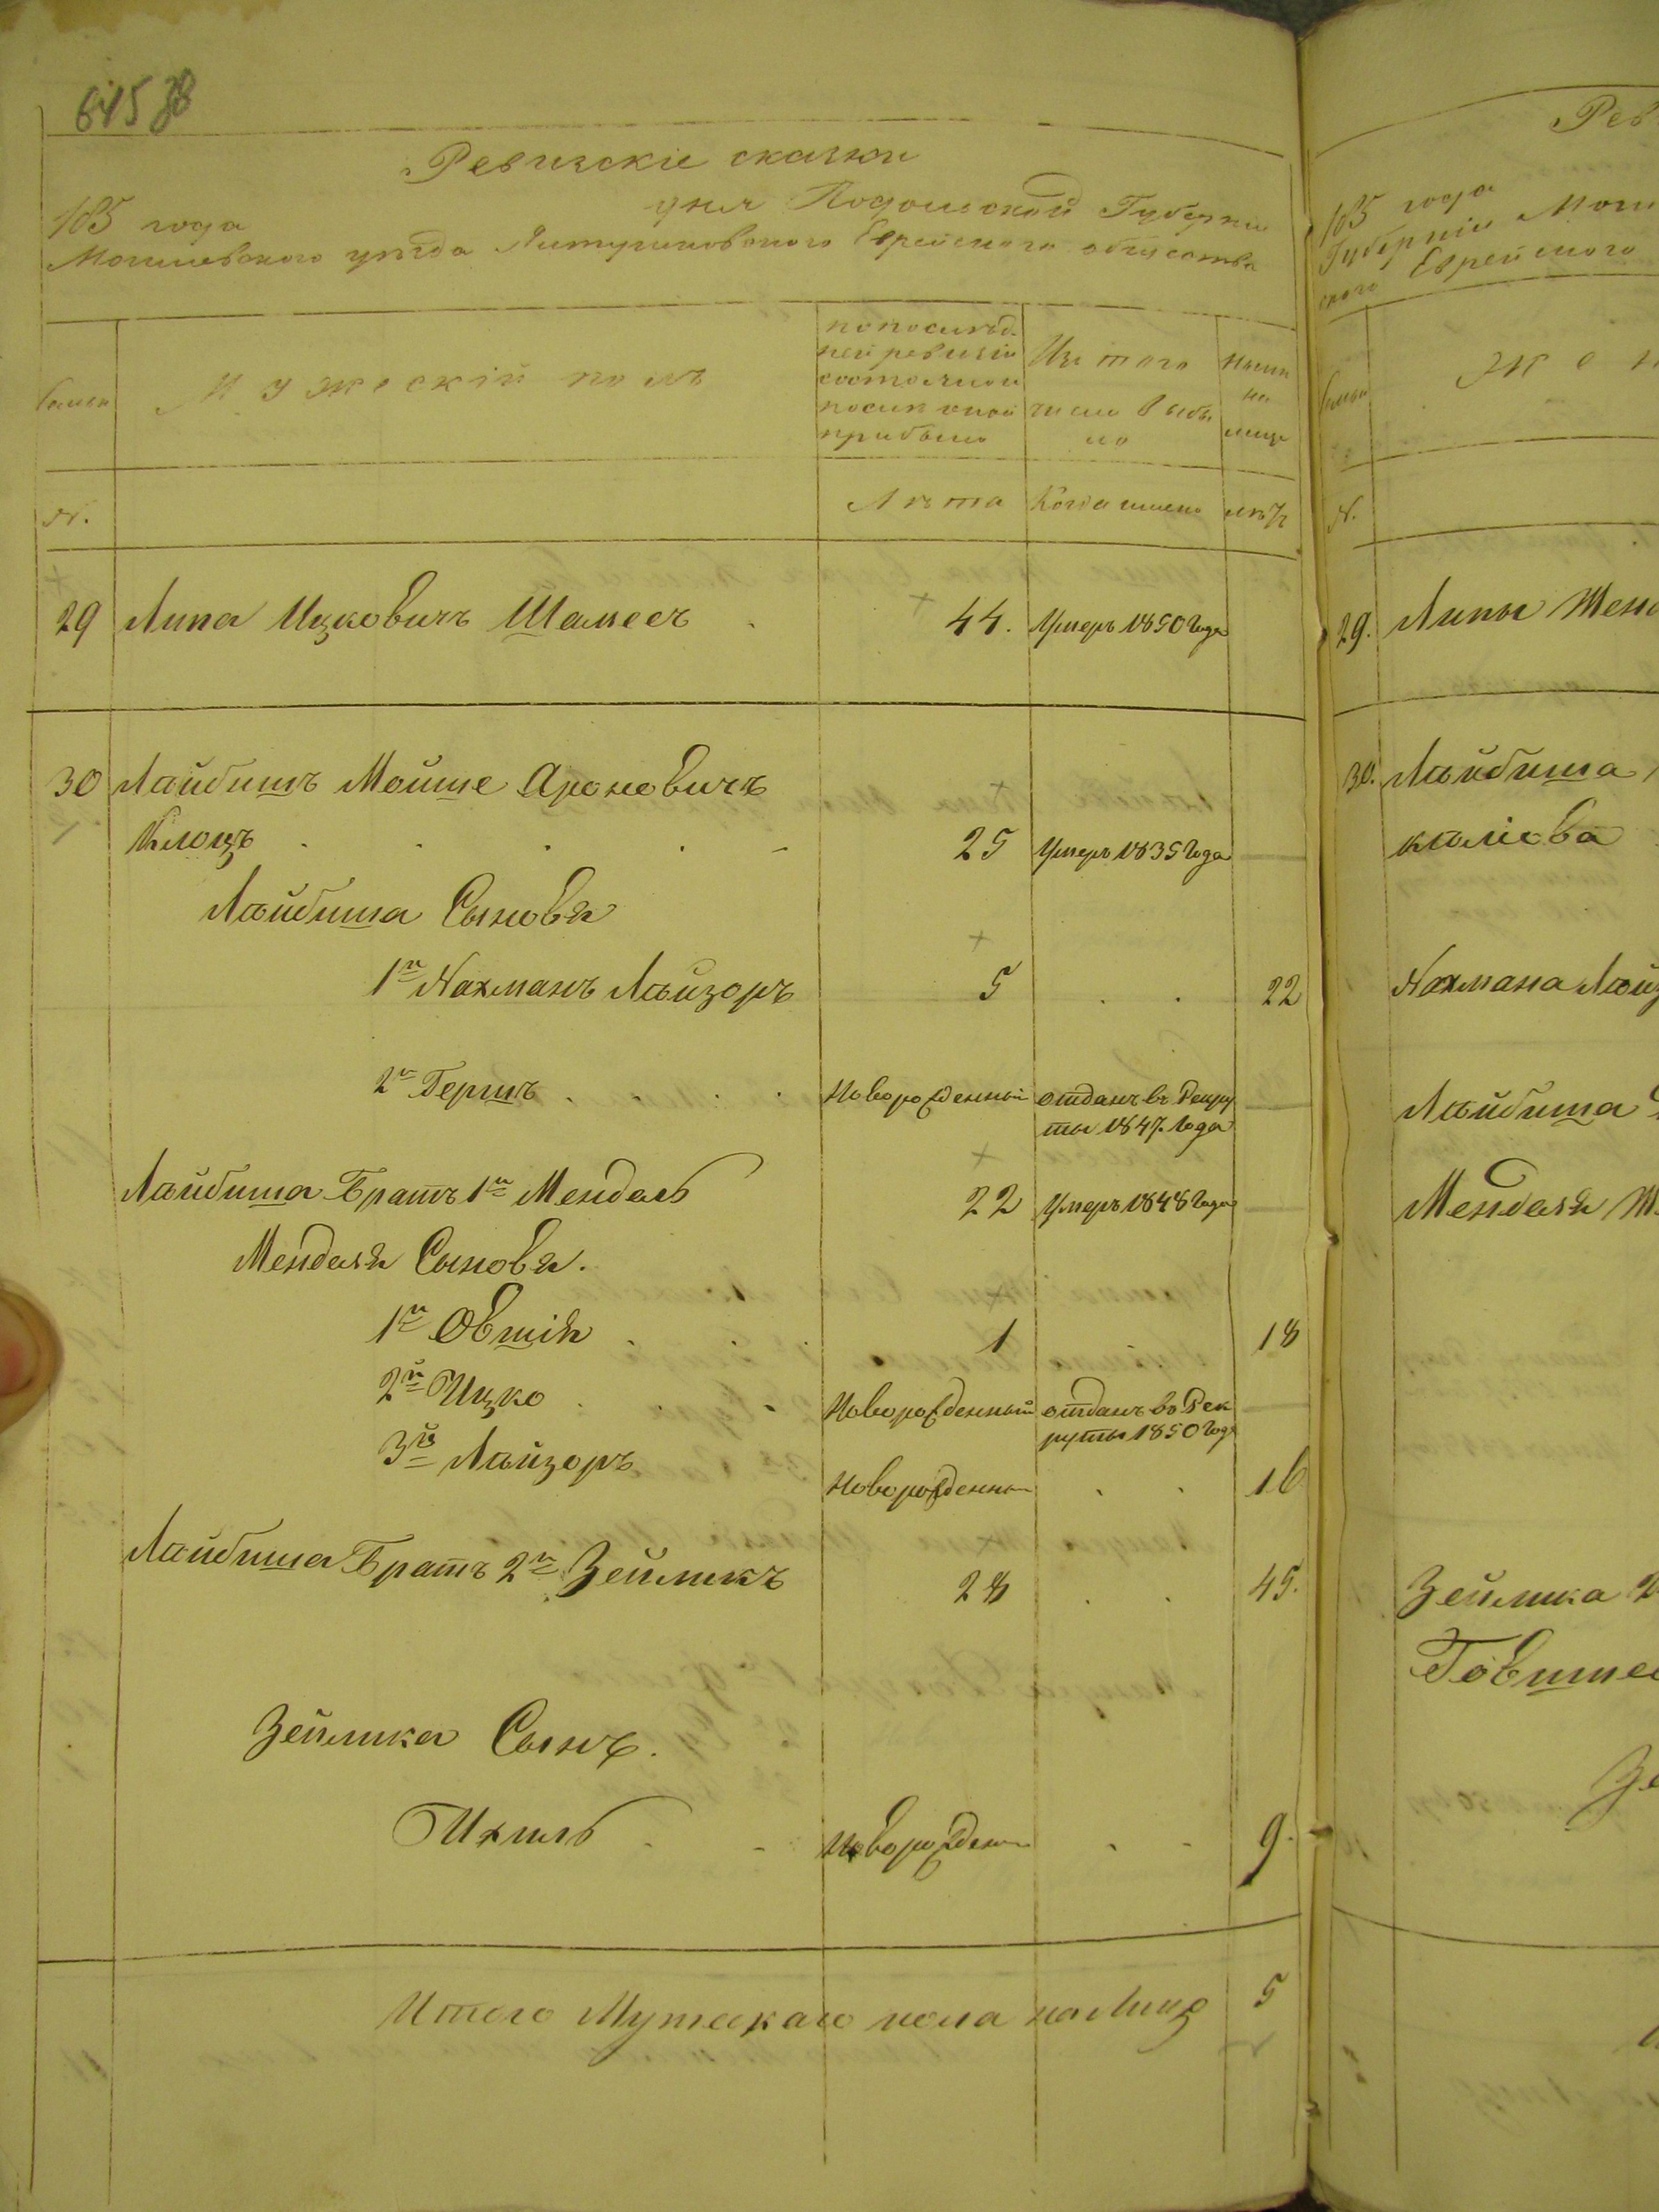 645 зв
Ревизскіе сказки
185 года дня Подольской Губерніи
Могилевского уезда Литугиновского Еврейского общества
Мужескій полъ
по послед-
ней ревизіи
состояло и
после оной
прибыло
Изъ того
числа выбы
ло
Ныне
на
лице
№.
Лета Когда имено летъ
29 Липа Ицковичъ Шамесъ 44. Умеръ 1850 Года
30 Лайбишъ Мойше Ароновичъ
Клоцъ 25 Умеръ 1835 Года
Лайбиша Сыновя
1й Нахманъ Лайзоръ 5 22
2й Гершъ Новорожденный отданъ в Рекру
ты 1847 Года
Лайбиша Братъ 1й Мендель 22 Умеръ 1848 Года
Менделя Сыновя.
1й Овшія 1 18
2й Ицко Новорожденный отданъ во Рек
руты 1850 Года
3й Лайзоръ Новорожденны 16
Лайбиша Братъ 2й Зейликъ 28 45.
Зейлика Сынъ.
Ихиль Новорожден 9.
Итого Мужескаго пола на Лице 5
Рев
185 года
Губерніи Моги
ского Еврейского
Же
№.
29. Липы Жена
30. Лайбиша
Нахмана Лайз
Лайбиша
Менделя Ж
Зейлика 2
Зе